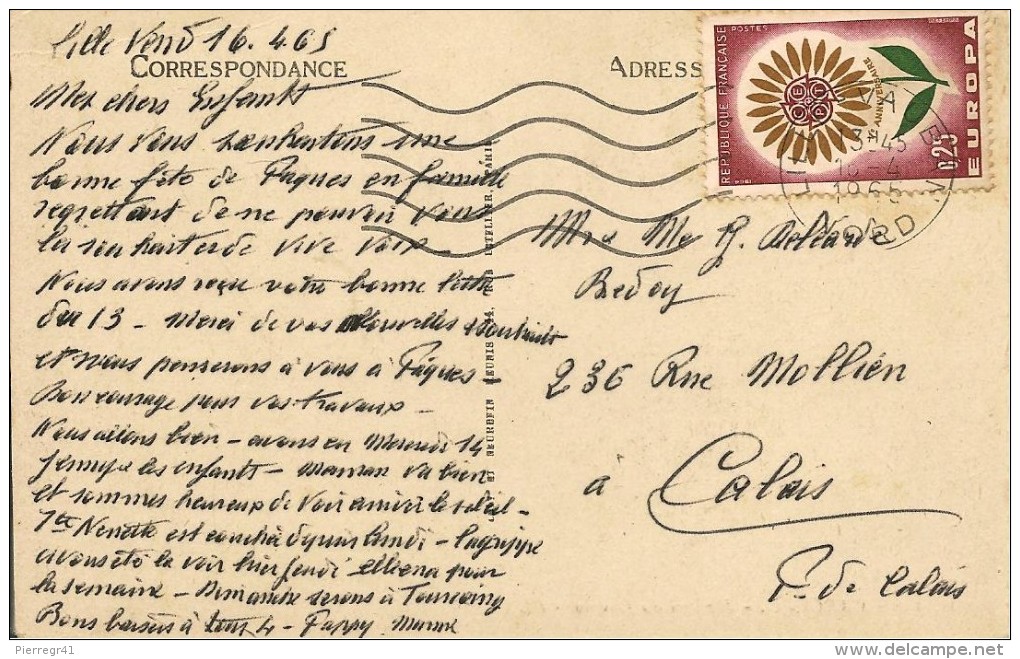 Lille Vend 16.4.65
CORRESPONDANCE
Mes chers Enfants
Nous vous souhaitons une
bonne fête de Pâques en famille
regrettant de ne pouvoir vous
la souhaiter de vive voix
Nous avons reçu votre bonne lettre
du 13 - Merci de vos Nouvelles & souhaits
et nous penserons à vous à Pâques -
Bon courage pour vos travaux -
Nous allons bien - avons eu Mercredi 14
Jenny & les enfants - Maman va bien
et sommes heureux de voir arriver le soleil -
Tte Nenette est couchée depuis lundi - la grippe
avons été la voir hier jeudi elle en a pour
la semaine - Dimanche serons à Tourcoing
Bons baisers à tous 4 - Pappy Mamie
ADRESS
REPUBLIQUE FRANÇAISE
POSTES
CEPT
ANNIVERSAIRE
0,25
EUROPA
13H45
1965
NORD
Mr & Me
236 Rue Mollien
à Calais
P. de Calais
Pierregr41
delcampe.net